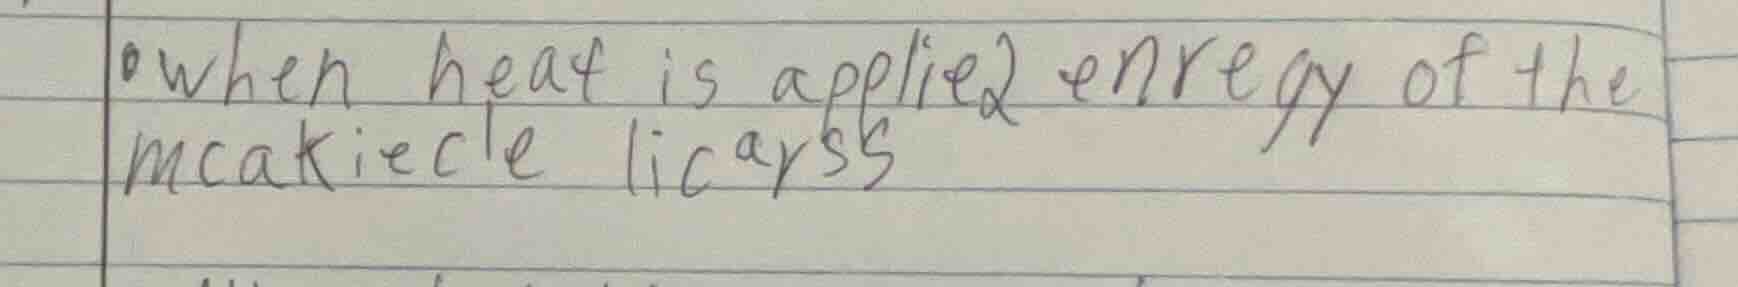 •when heat is applied enregy of the
mcakiecle licarss